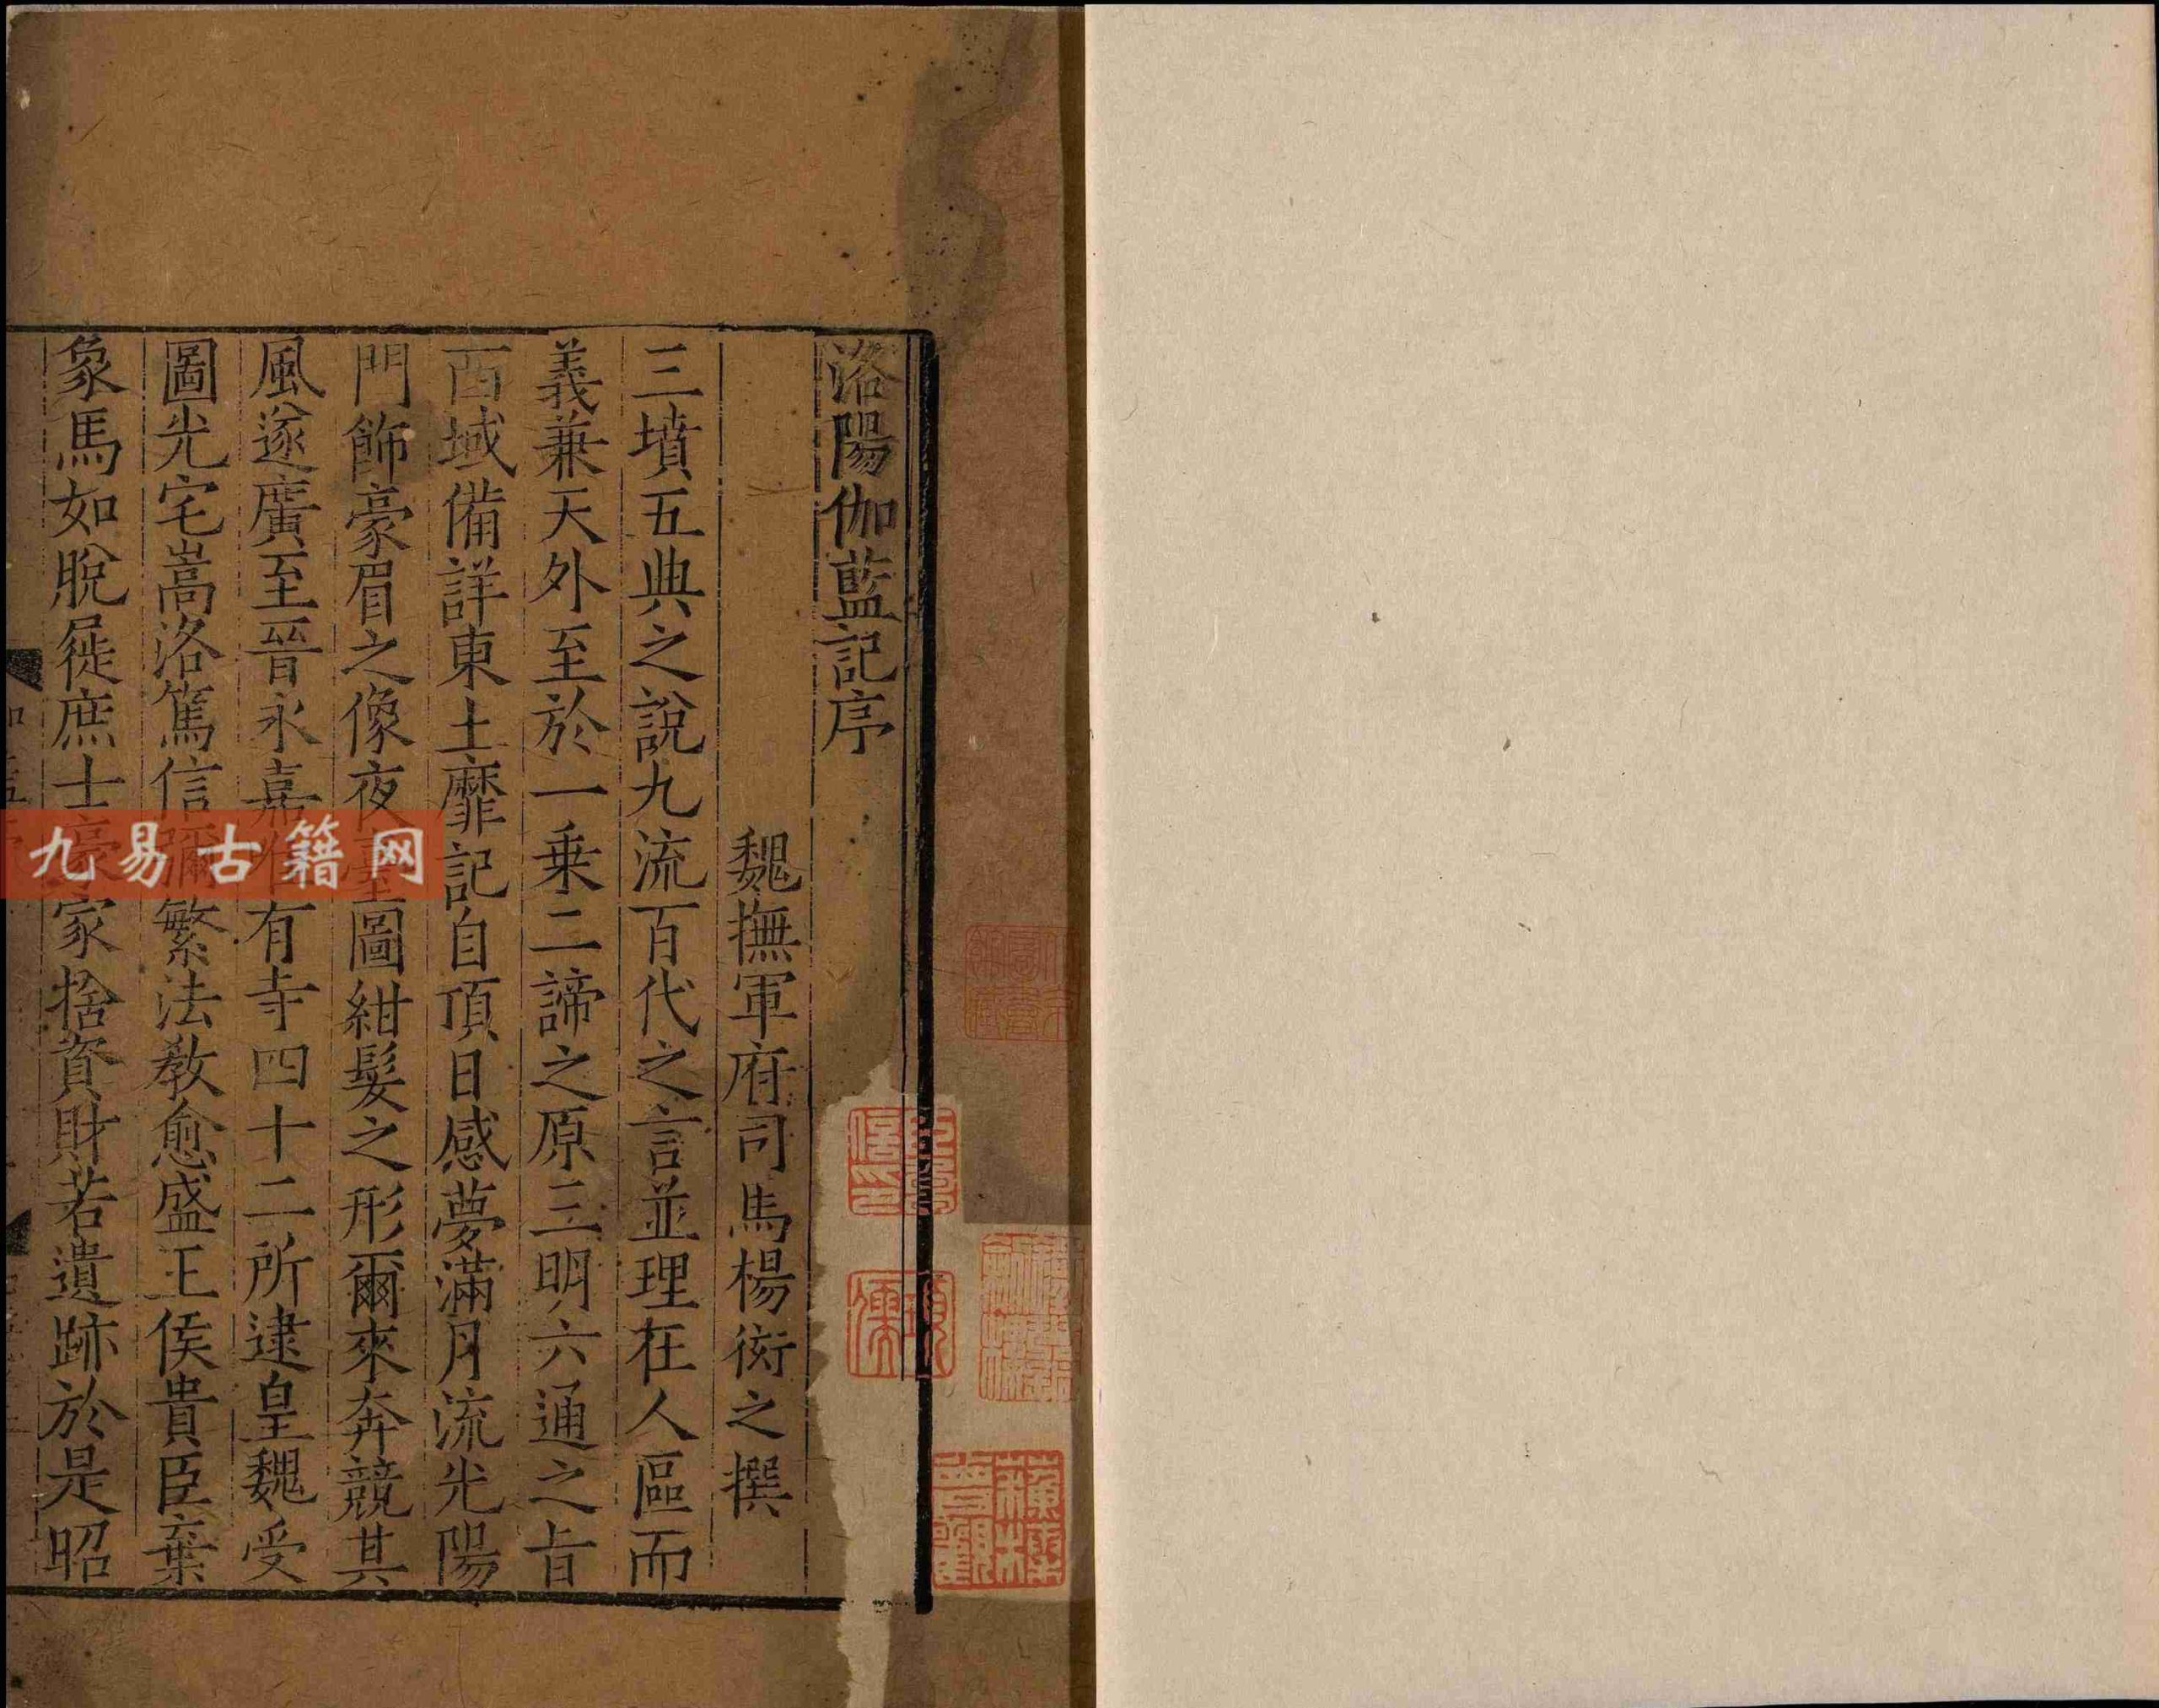 洛陽伽藍記序
魏撫軍府司馬楊衒之撰
三墳五典之說九流百代之言並理在人區而
義兼天外至於一乗二諦之原三明六通之㫖
西域備詳東土靡記自頂日感夢滿月流光陽
門飾豪眉之像夜臺圖紺髮之形爾來奔競其
風遂廣至晉永嘉唯有寺四十二所逮皇魏受
圖光宅嵩洛篤信彌繁法教愈盛王侯貴臣棄
象馬如脫屣庶士豪家捨資財若遺跡於是昭
九易古籍网